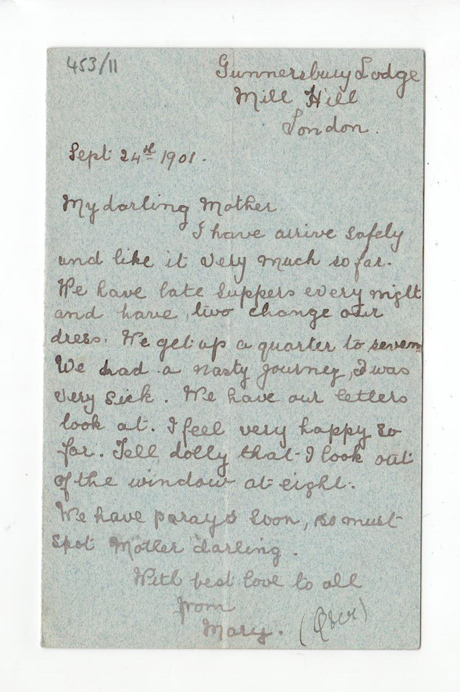 453/11
Gunnersbury Lodge
Mill Hill
London.
Sept 24th 1901.
My darling Mother
I have arrive safely
and like it very much so far.
We have late suppers every night
and have two change our
dress. We get up a quarter to seven
We had a nasty journey, I was
very sick. We have our letters
look at. I feel very happy so
far. Tell dolly that I look out
of the window at eight.
We have prays soon, so must
spot Mother darling.
With best love to all
from
Mary.